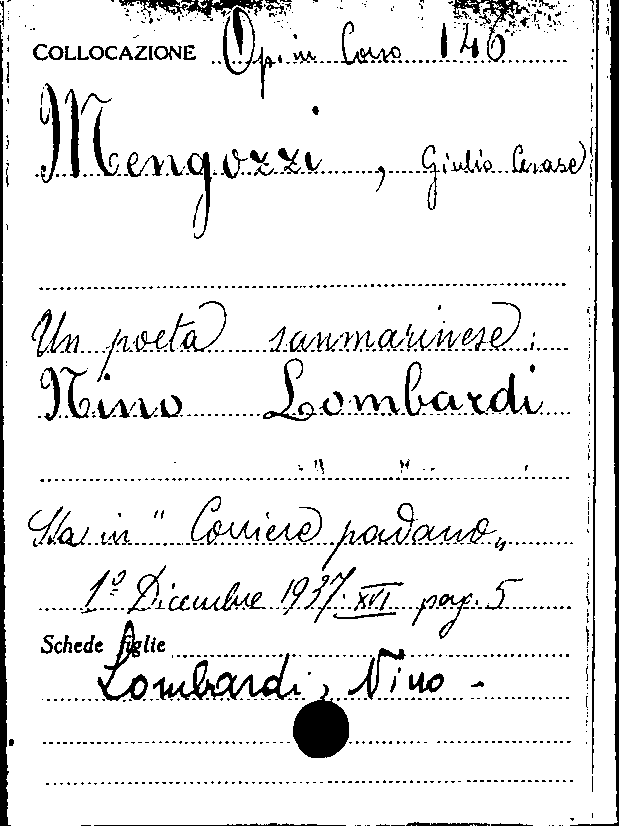 COLLOCAZIONE Op. in Corso 146
Mengozzi, Giulio Cesare
Un poeta sanmarinese:
Nino Lombardi
Sta in "Corriere padano„
1º Dicembre 1937. XVI pag. 5
Schede figlie
Lombardi, Nino -